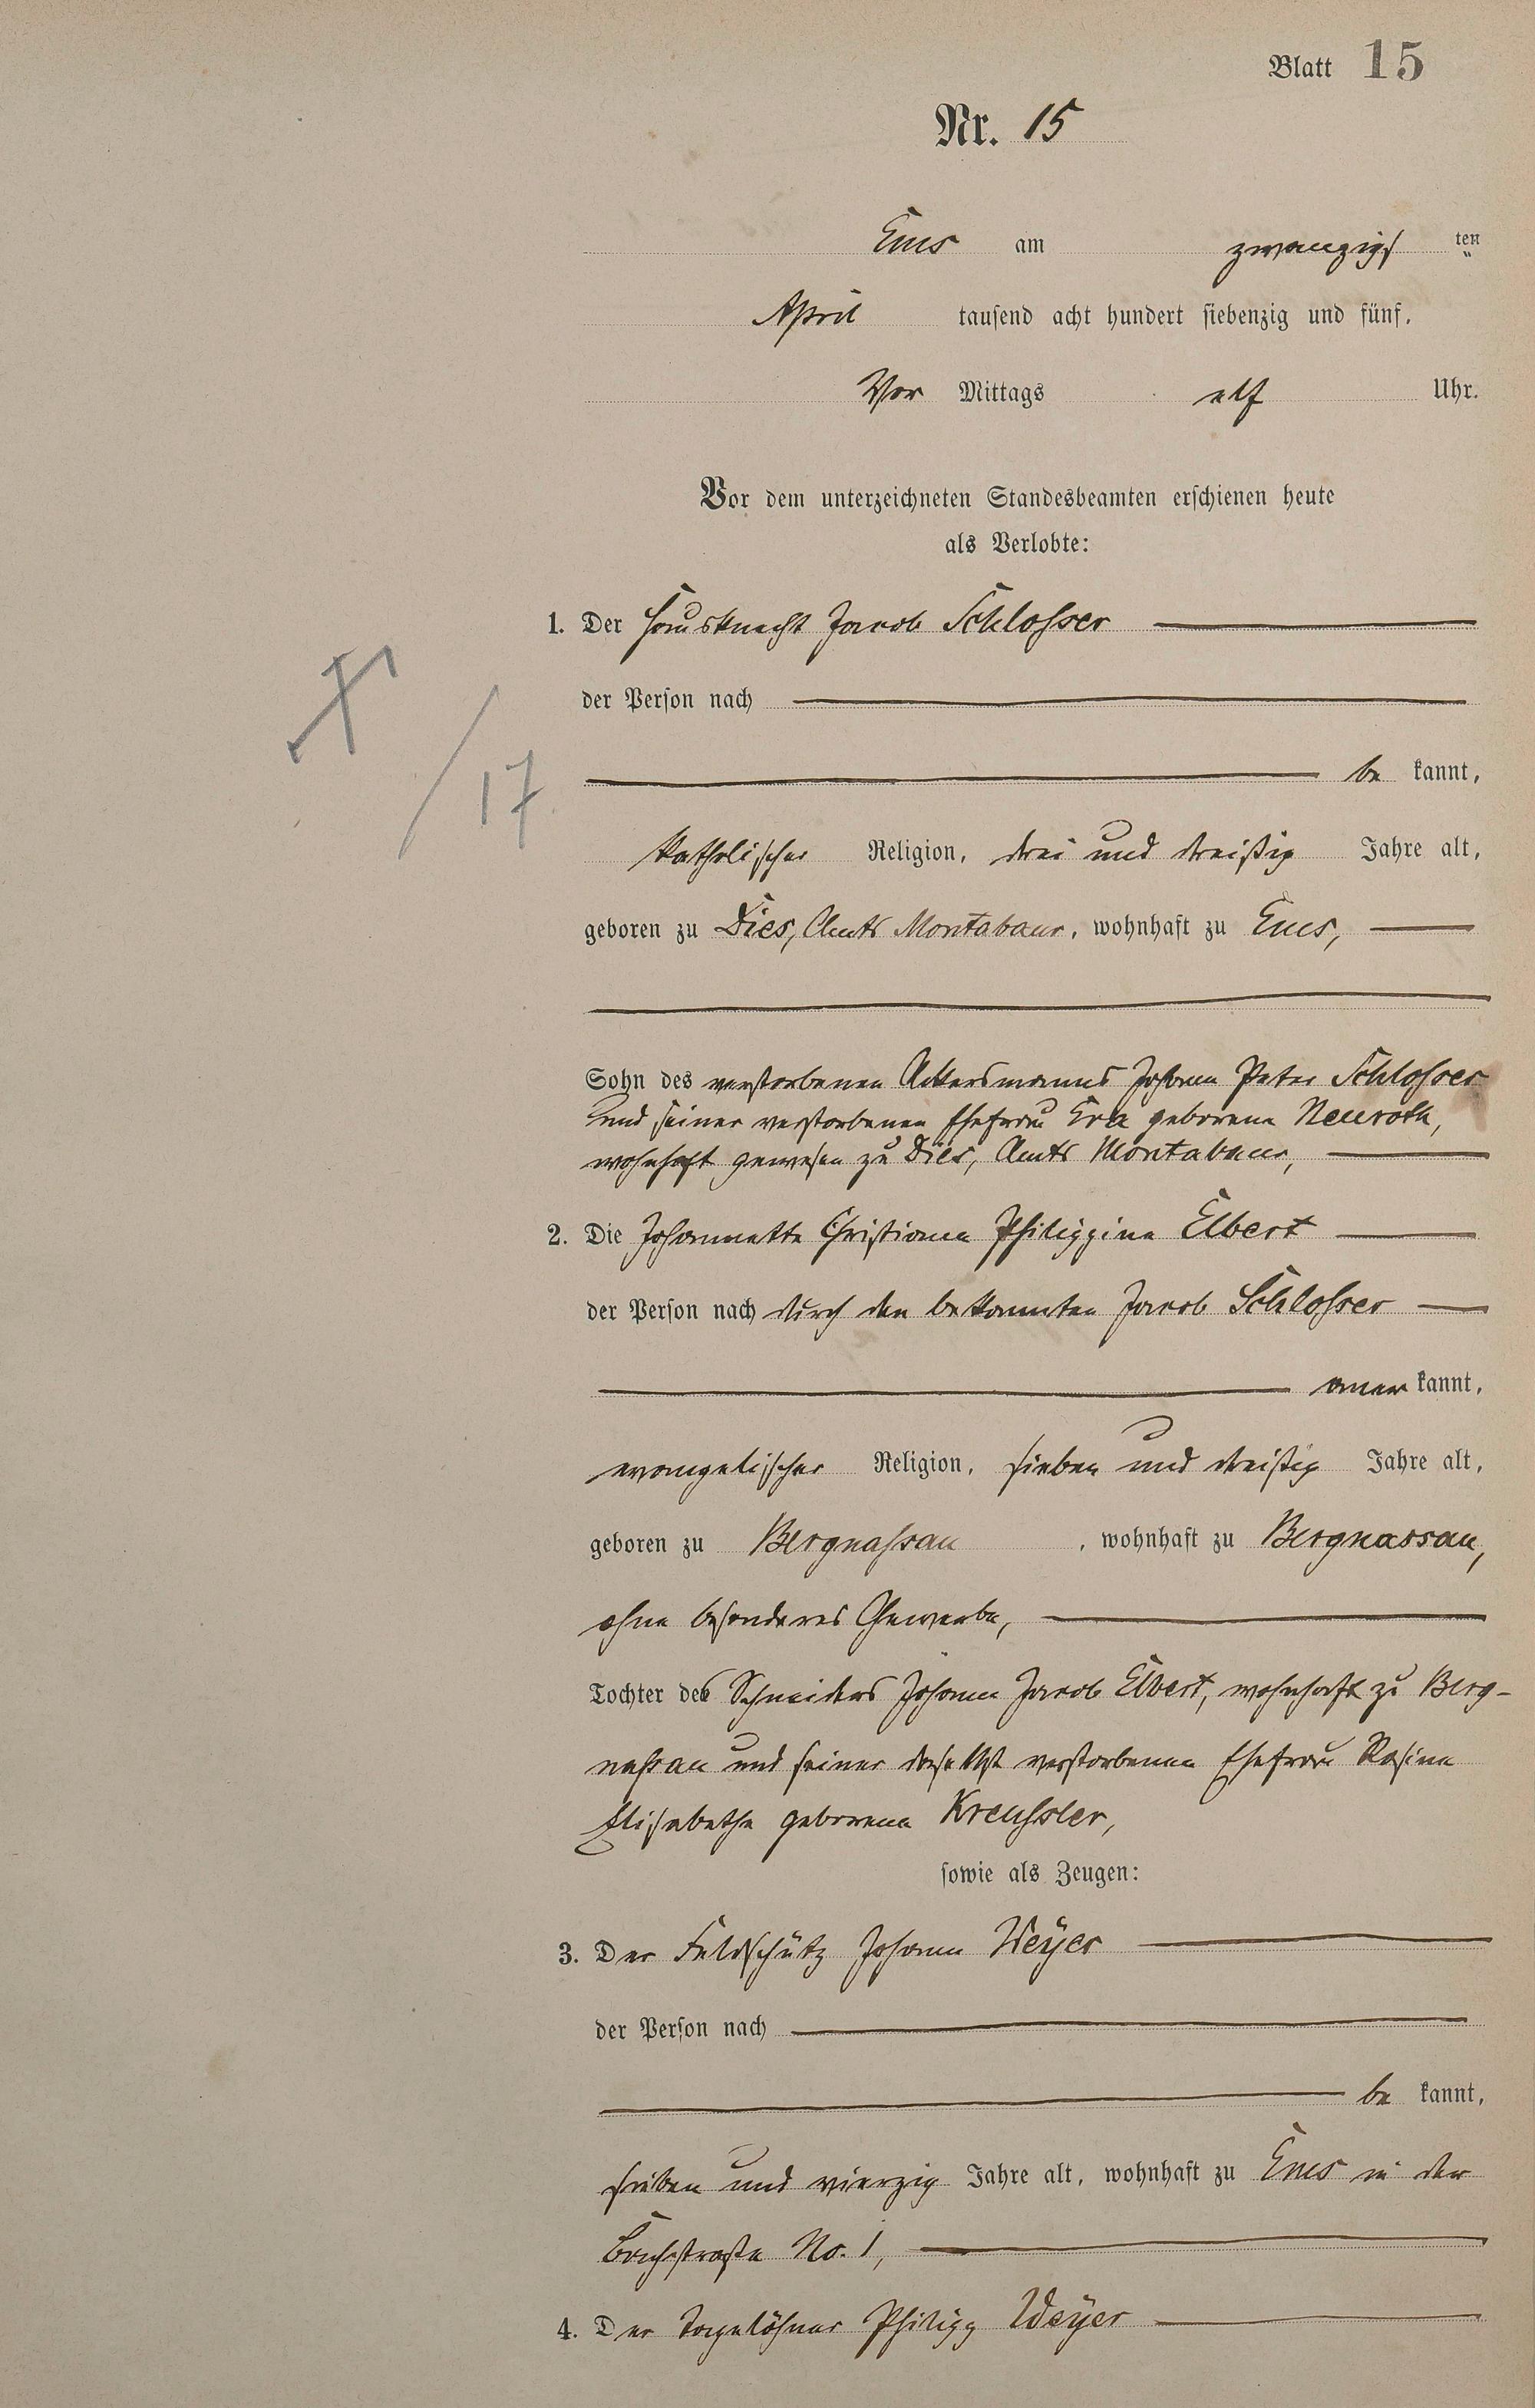 Blatt 15
Nr. 15
Ems am zwanzigsten
April tausend acht hundert siebenzig und fünf.
Vor Mittags elf Uhr.
Vor dem unterzeichneten Standesbeamten erschienen heute
als Verlobte:
1. Der Hausknecht Jacob Schlosser
der Person nach
be kannt,
X / 17
katholischer Religion, drei und dreißig Jahre alt,
geboren zu Dies, Amts Montabaur, wohnhaft zu Ems,
Sohn des verstorbenen Ackersmanns Johann Peter Schlosser
und seiner verstorbenen Ehefrau Eva geborene Neuroth,
wohnhaft gewesen zu Dies, Amts Montabaur,
2. Die Johannette Christiane Philippine Elbert
der Person nach durch den bekannten Jacob Schlosser
aner kannt,
evangelischer Religion, sieben und dreißig Jahre alt,
geboren zu Bergnassau, wohnhaft zu Bergnassau,
ohne besonderes Gewerbe,
Tochter des Schneiders Johann Jacob Elbert, wohnhaft zu Berg-
nassau und seiner daselbst verstorbenen Ehefrau Rosine
Elisabethe geborene Kreussler,
sowie als Zeugen:
3. Der Feldschütz Johann Weyer
der Person nach
be kannt,
sieben und vierzig Jahre alt, wohnhaft zu Ems in der
Bachstraße No. 1,
4. Der Tagelöhner Philipp Weyer